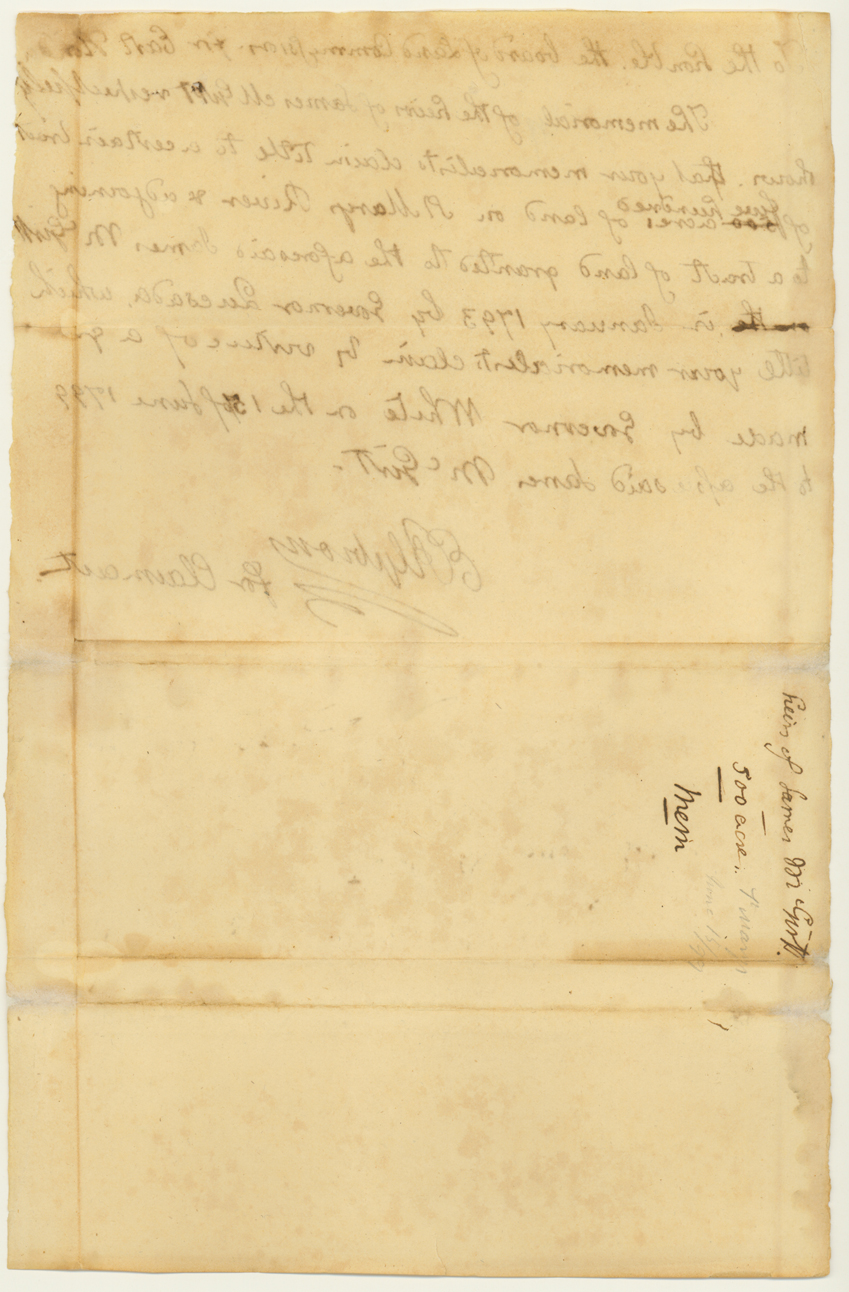 To the honble. the board of Land Commissioners for East
The memorial of the heirs of James McGirtt respectfully
shows. that your memorialists claim title to a certain tract
five hundred
of 500 acres of land on St Marys River & adjoining
to a tract of land granted to the aforesaid James McGirtt
in January 1793 by Governor Quesada. which
title your memorialists claim by virtue of a
made by Governor White on the 15 of June 1799
to the aforesaid James McGirt.
for Claimant.
heirs of James McGirtt.
500 acres St Marys
Mem